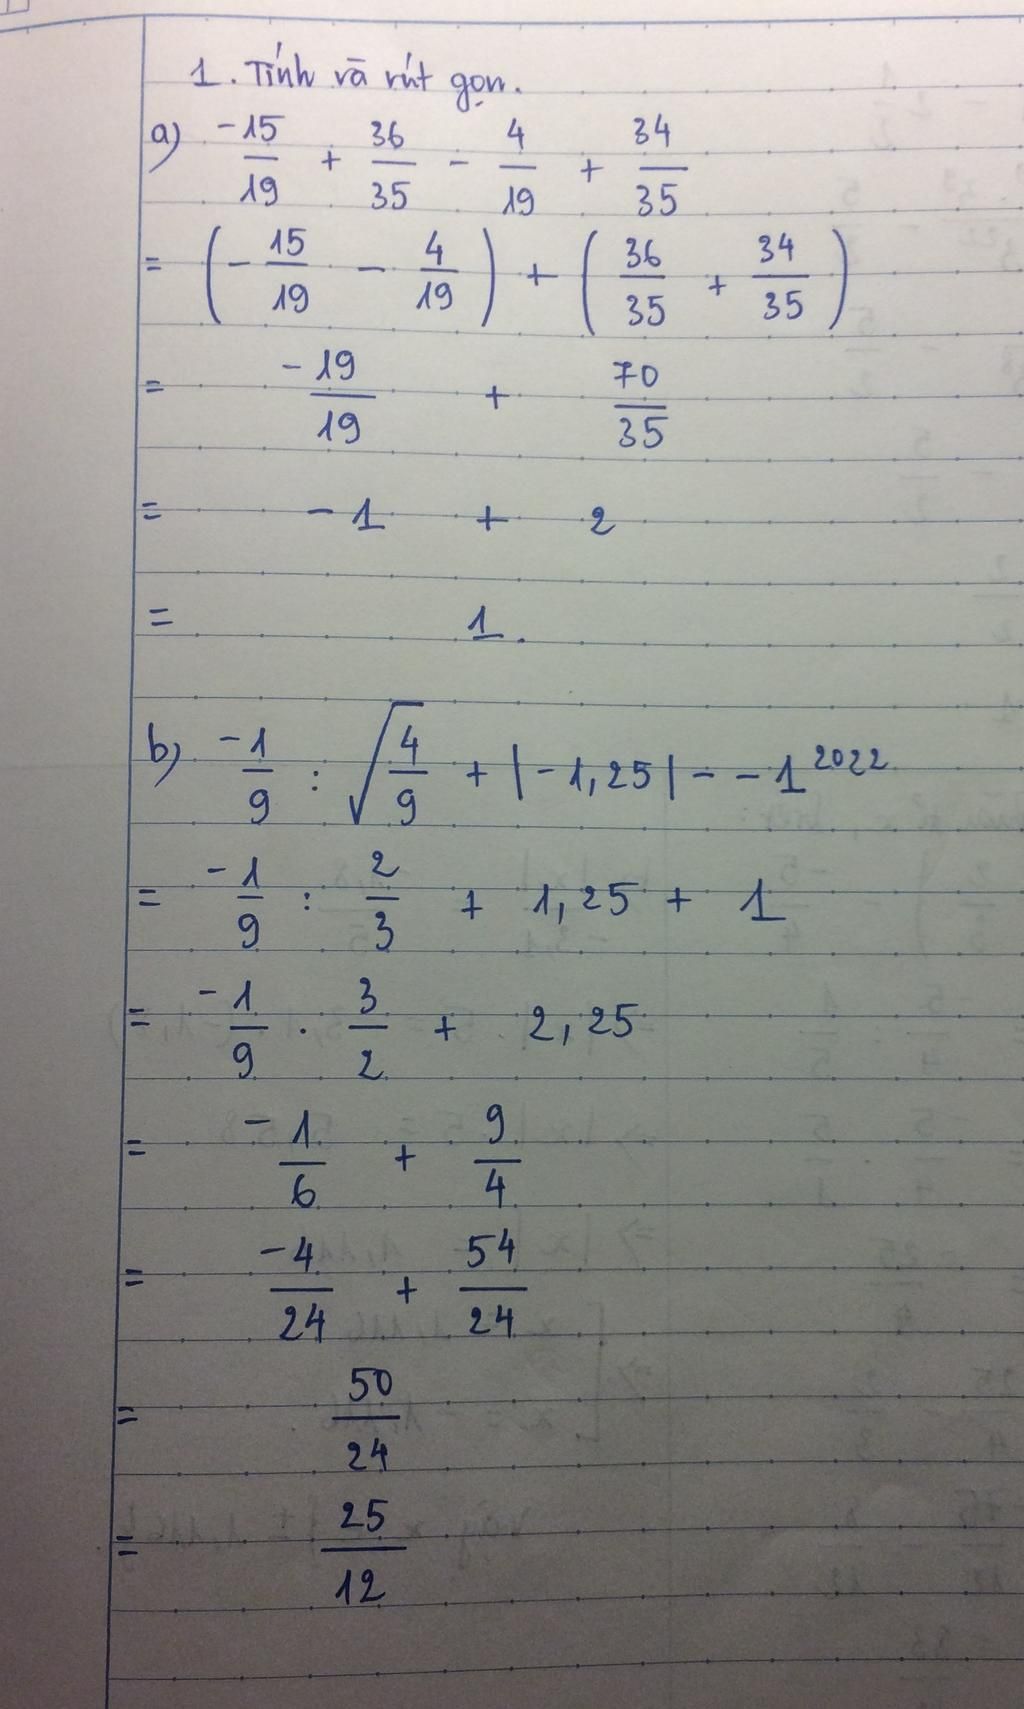 1. Tính và rút gọn.
a) -15/19 + 36/35 - 4/19 + 34/35
= (-15/19 - 4/19) + (36/35 + 34/35)
= -19/19 + 70/35
= -1 + 2
= 1.
b) -1/9 : √(4/9) + |-1,25| - -1²⁰²²
= -1/9 : 2/3 + 1,25 + 1
= -1/9 . 3/2 + 2,25
= -1/6 + 9/4
= -4/24 + 54/24
= 50/24
= 25/12